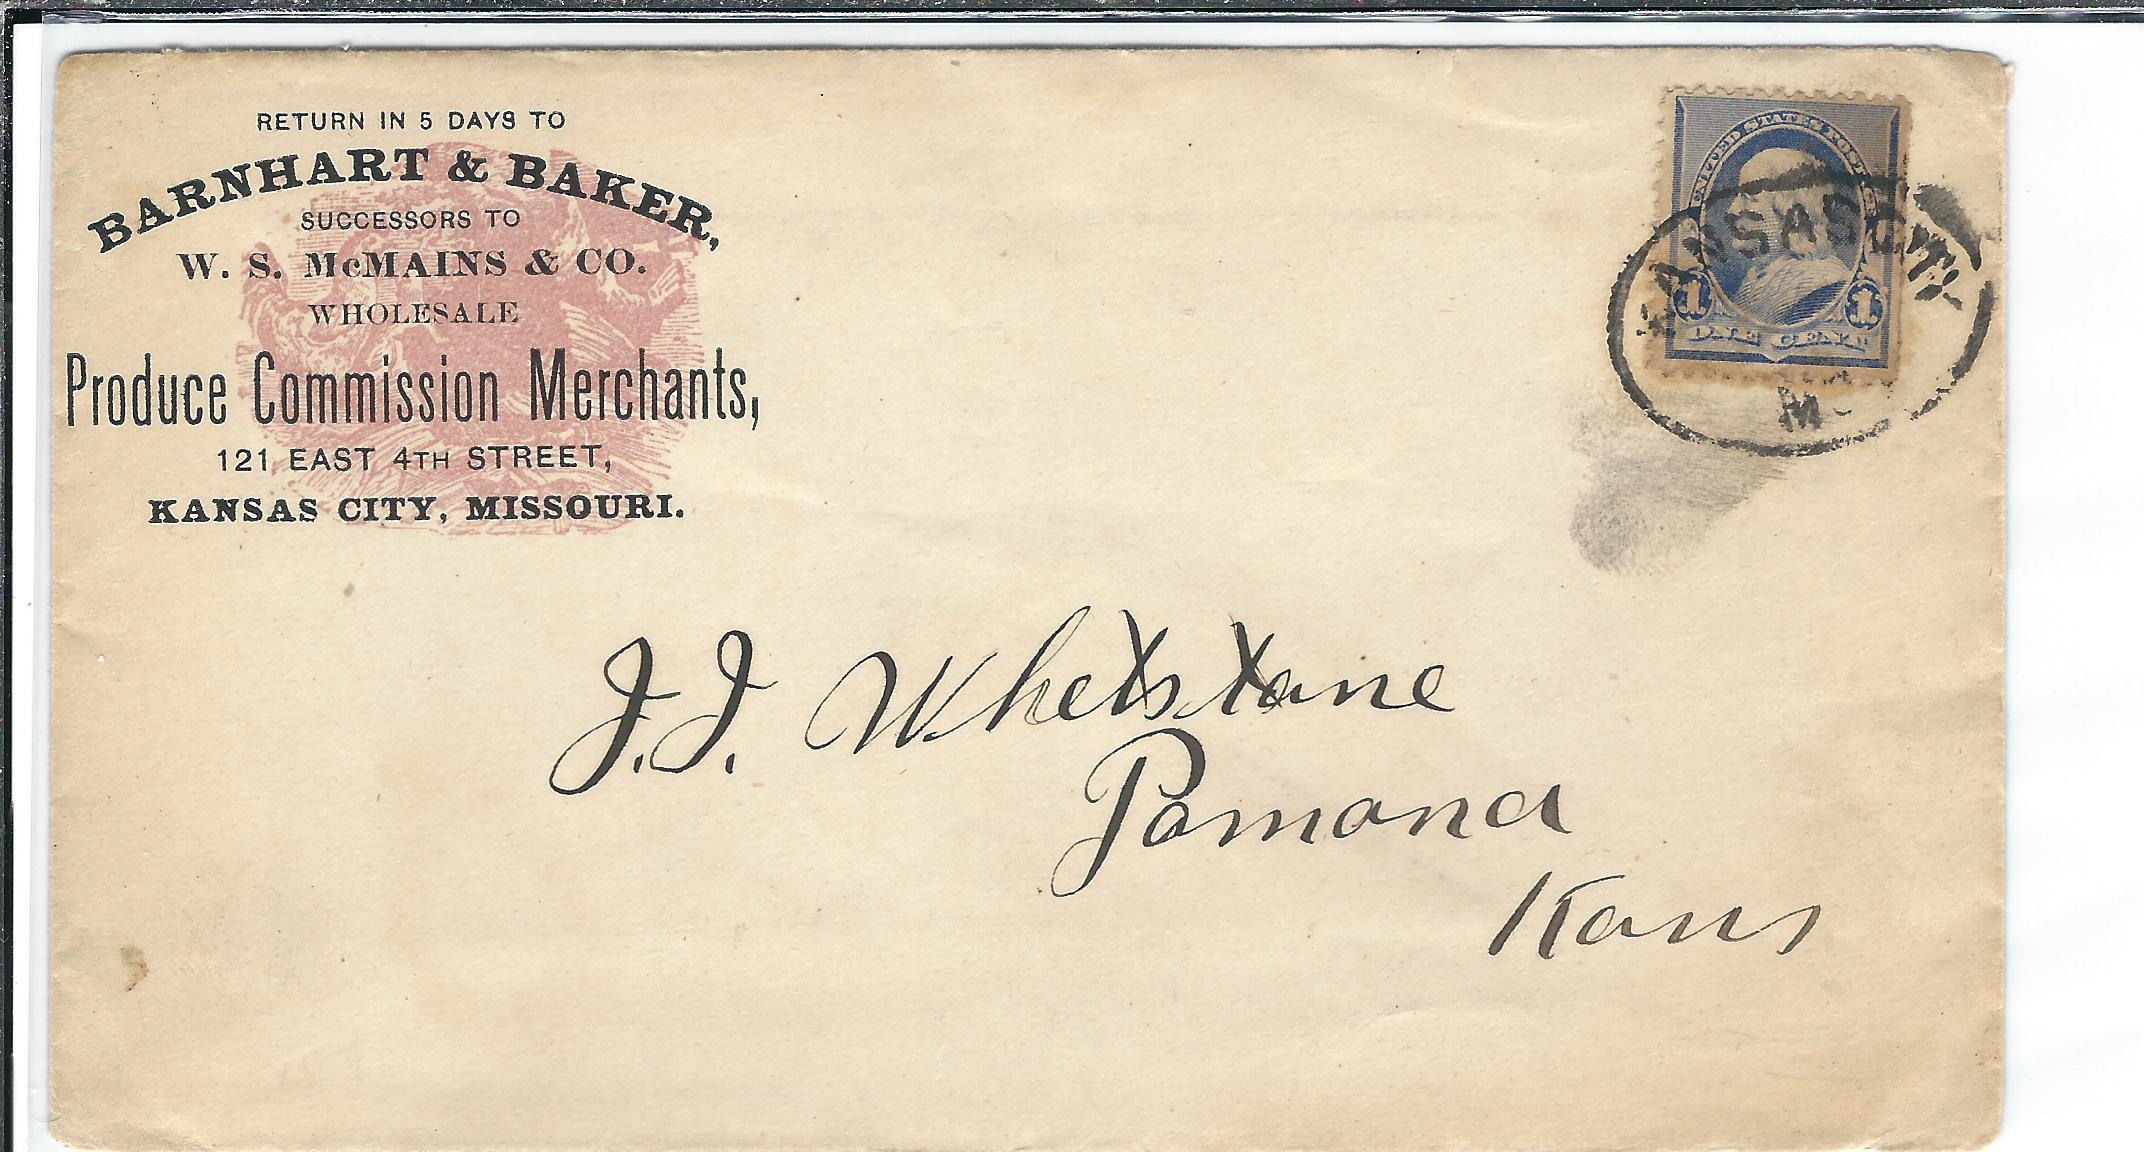 RETURN IN 5 DAYS TO
BARNHART & BAKER,
SUCCESSORS TO
W. S. McMAINS & CO.
WHOLESALE
Produce Commission Merchants,
121 EAST 4TH STREET,
KANSAS CITY, MISSOURI.
UNITED STATES POSTAGE
1 1
ONE CENT
KANSAS CITY
MO
J.J. Whetstone
Pomona
Kans